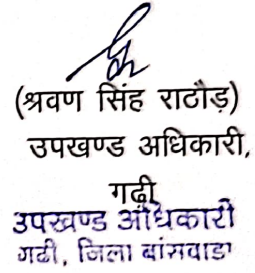 (श्रवण सिंह राठौड़)
उपखण्ड अधिकारी,
गढ़ी
उपखण्ड अधिकारी
गढी, जिला बांसवाडा